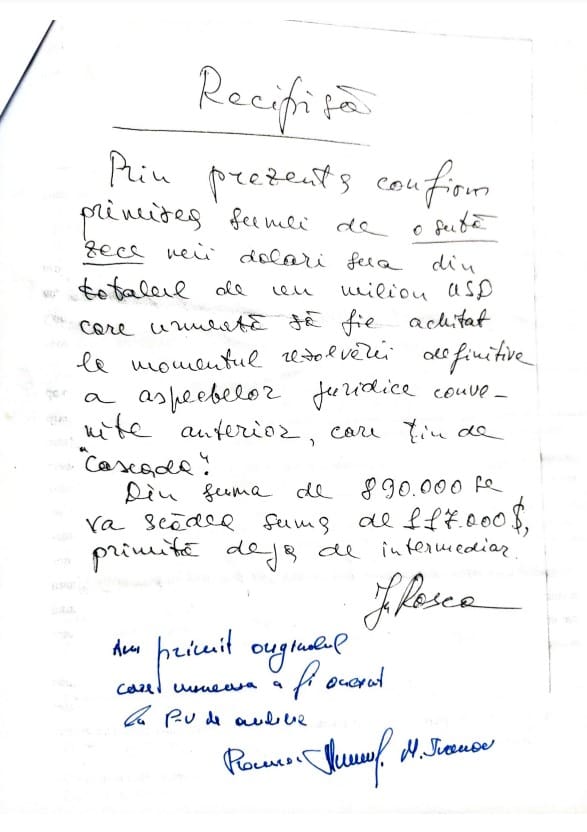 Recipisă
Prin prezenta confirm
primirea sumei de o sută
zece mii dolari sua din
totalul de un milion USD
care urmează să fie achitat
la momentul rezolvării definitive
a aspectelor juridice conve-
nite anterior, care țin de
"Cascada".
Din suma de 890.000 se
va scădea suma de 117.000$,
primită deja de intermediar.
Rosca
Am primit originalul
care urmeaza a fi anexat
la P-V de audiere
Procuror M. Ivanov